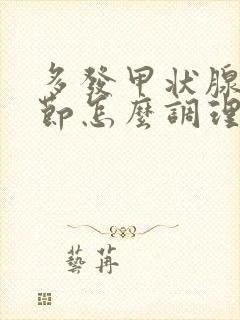 多發甲状腺
節怎麼調理
藝苒